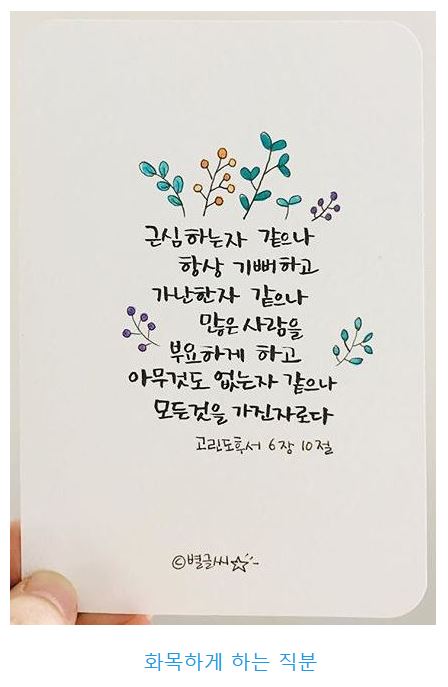 근심하는자 같으나
항상 기뻐하고
가난한자 같으나
많은 사람을
부요하게 하고
아무것도 없는자 같으나
모든것을 가진자로다
고린도후서 6장 10절
©별글씨
화목하게 하는 직분